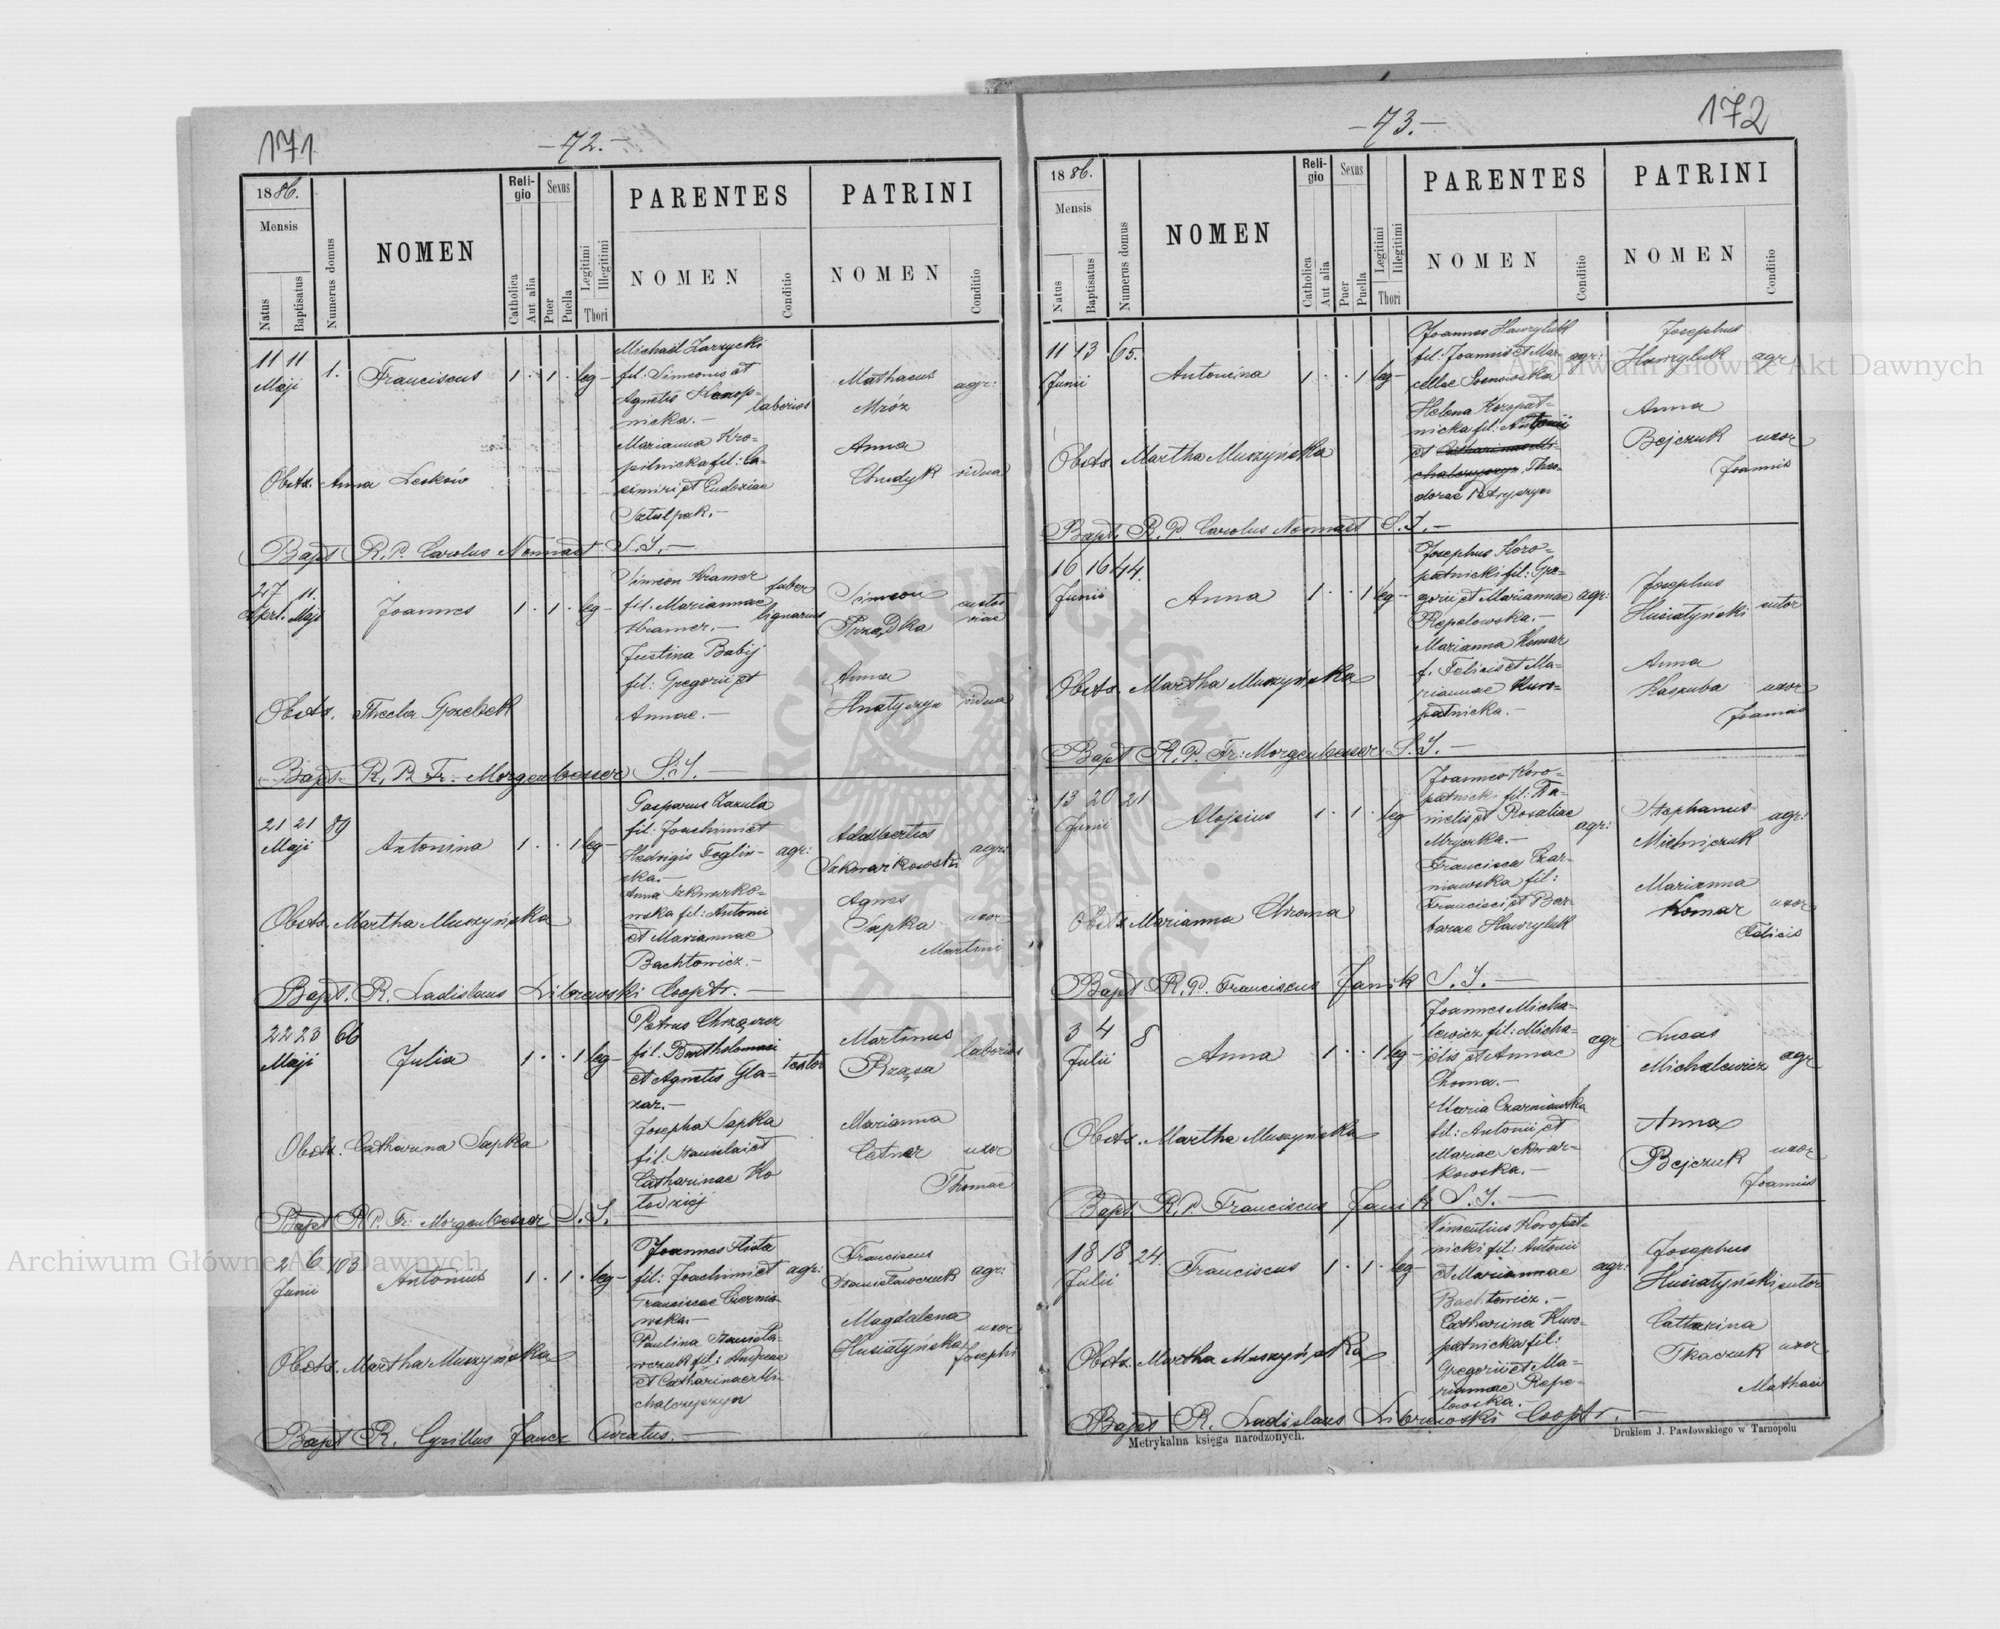 171
—72.—
1886.
Mensis
Natus
Baptisatus
Numerus domus
NOMEN
Religio
Catholica
Aut alia
Sexus
Puer
Puella
Legitimi
Illegitimi
Thori
PARENTES
NOMEN
Conditio
PATRINI
NOMEN
Conditio
11 11 1. Franciscus 1 . 1 . leg—
Maji
Michaël Zarzycki
fil: Simeonis et
Agnetis Konop-
nicka.—
laborios
Marianna Kro-
pilnicka fil: Ca-
simiri et Eudoxiae
Sztulpak.—
Mathaeus agr:
Mróz
Anna
Chudyk vidua
Obstx. Anna Leskow
Bapt R. P. Carolus Nennast S. J.—
27 11. Joannes 1 . 1 . leg—
Aprl. Maji
Simeon Kramer
fil. Mariannae
Kramer.—
faber
lignarius
Justina Babij
fil: Gregorii et
Annae.—
Simeon
Prządka
Anna
Hnatyszyn vidua
Obstx. Thecla Grzebek
Bapt R. P. Fr. Morgenbesser S. J.—
21 21 89 Antonina 1 . . 1 leg—
Maji
Gasparus Zazula
fil: Joachimi et
Hedvigis Teglin-
ska.—
agr:
Anna Szkwarko-
wska fil: Antonii
et Mariannae
Bachtowicz.—
Adalbertus agr:
Szkwarkowski
Agnes
Sapka uxor
Martini
Obstx. Martha Muszyńska
Bapt. R. Ladislaus Librewski Cooptr.—
22 23 66 Julia 1 . . 1 leg—
Maji
Petrus Chrząszcz
fil. Bartholomaei
et Agnetis Gla-
zar.—
textor
Josepha Sapka
fil. Stanislai et
Catharinae Ko
Martinus laborios
Rząsa
Marianna
Cetnar uxor
Thomae
Obstx. Catharina Sapka
Bapt R. P. Fr: Morgenbesser S. J.—
2 6 103 Antonius 1 . 1 . leg—
Junii
Joannes Hista
fil: Joachimi et
Franciscae Czernia
wska—
agr:
Paulina Stanisła-
wczuk fil: Andreae
et Catharinae Mi-
chalczyszyn
Franciscus
Stanisławczuk agr:
Magdalena
Husiatyńska uxor
Josephi
Obstx. Martha Muszyńska
Bapt R. Cyrillus Jancz Curatus.—
172
—73.—
1886.
Mensis
Natus
Baptisatus
Numerus domus
NOMEN
Religio
Catholica
Aut alia
Sexus
Puer
Puella
Legitimi
Illegitimi
Thori
PARENTES
NOMEN
Conditio
PATRINI
NOMEN
Conditio
11 13 65. Antonina 1 . . 1 leg—
Junii
Joannes Hawryluk
fil: Joannis et Mar-
cellae Sosnowska
agr:
Helena Koropat-
nicka fil: Antonii
et Catharinae Mi-
chalczyszyn Theo-
dorae Petryszyn
Josephus
Hawryluk agr
Anna
Bejczuk uxor
Joannis
Obstx. Martha Muszyńska
Bapt. R. P. Carolus Nennast S. J.—
16 16 44. Anna 1 . . 1 leg—
Junii
Josephus Koro-
patnicki fil: Gre-
gorii et Mariannae
Repelowska.—
agr:
Marianna Komar
f. Felicis et Ma-
riannae Kuro-
patnicka.—
Josephus
Husiatyński sutor
Anna
Kaszuba uxor
Joannis
Obstx. Martha Muszyńska
Bapt R. P. Fr: Morgenbesser S. J.—
13 20 21 Alojsius 1 . 1 . leg
Junii
Joannes Koro-
patnicki fil: Da-
nielis et Rosaliae
agr:
Francisca Czar-
niawska fil:
Francisci et Bar-
barae Hawryluk
Stephanus agr:
Mielniczuk
Marianna
Komar uxor
Felicis
Obstx Marianna Chroma
Bapt R. P. Franciscus Janik S. J.—
3 4 8 Anna 1 . . 1 leg—
Julii
Joannes Micha-
lewicz fil: Micha-
ëlis et Annae
Chroma.—
agr
Maria Czarniawska
fil: Antonii et
Mariae Szkwar-
kowska.—
Lucas
Michalewicz agr
Anna
Bejczuk uxor
Joannis
Obstx. Martha Muszyńska
Bapt R. P. Franciscus Janik S. J.—
18 18 24. Franciscus 1 . 1 . leg—
Julii
Vincentius Koropat-
nicki fil: Antonii
et Mariannae
Bachtowicz.—
agr:
Catharina Kuro-
patnicka fil:
Gregorii et Ma-
riannae Repe-
lowska.—
Josephus
Husiatyński sutor
Catharina
Tkaczuk uxor
Mathaei
Obstx. Martha Muszyńska
Bapt R. Ladislaus Librewski Cooptr.—
Metrykalna księga narodzonych.
Drukiem J. Pawłowskiego w Tarnopolu
Archiwum Główne Akt Dawnych
Archiwum Główne Akt Dawnych
Archiwum Główne Akt Dawnych
ARCHIWUM GŁÓWNE AKT DAWNYCH